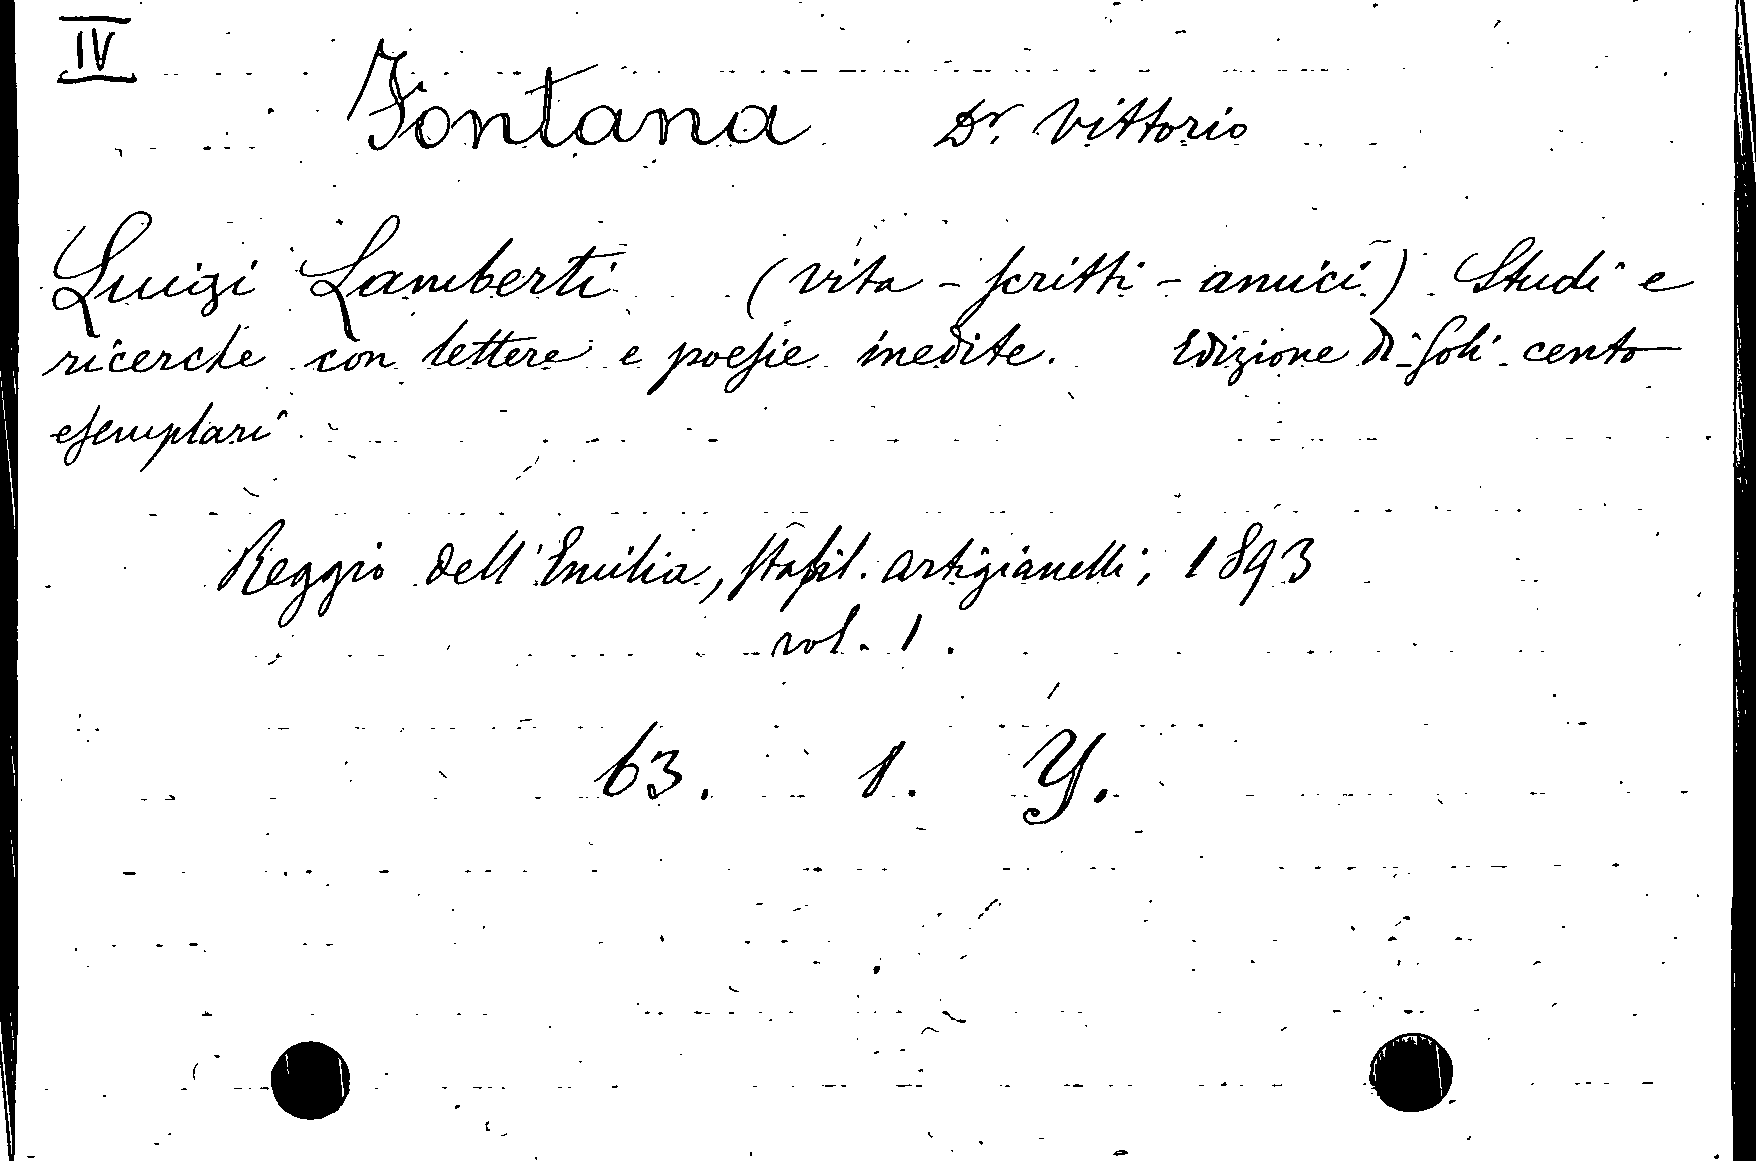 IV
Fontana Dr. Vittorio
Luigi Lamberti (vita - scritti - amici) Studi e
ricerche con lettere e poesie inedite. Edizione di soli cento
esemplari
Reggio dell'Emilia, stabil. artigianelli, 1893
vol. 1.
63. 1. Y.